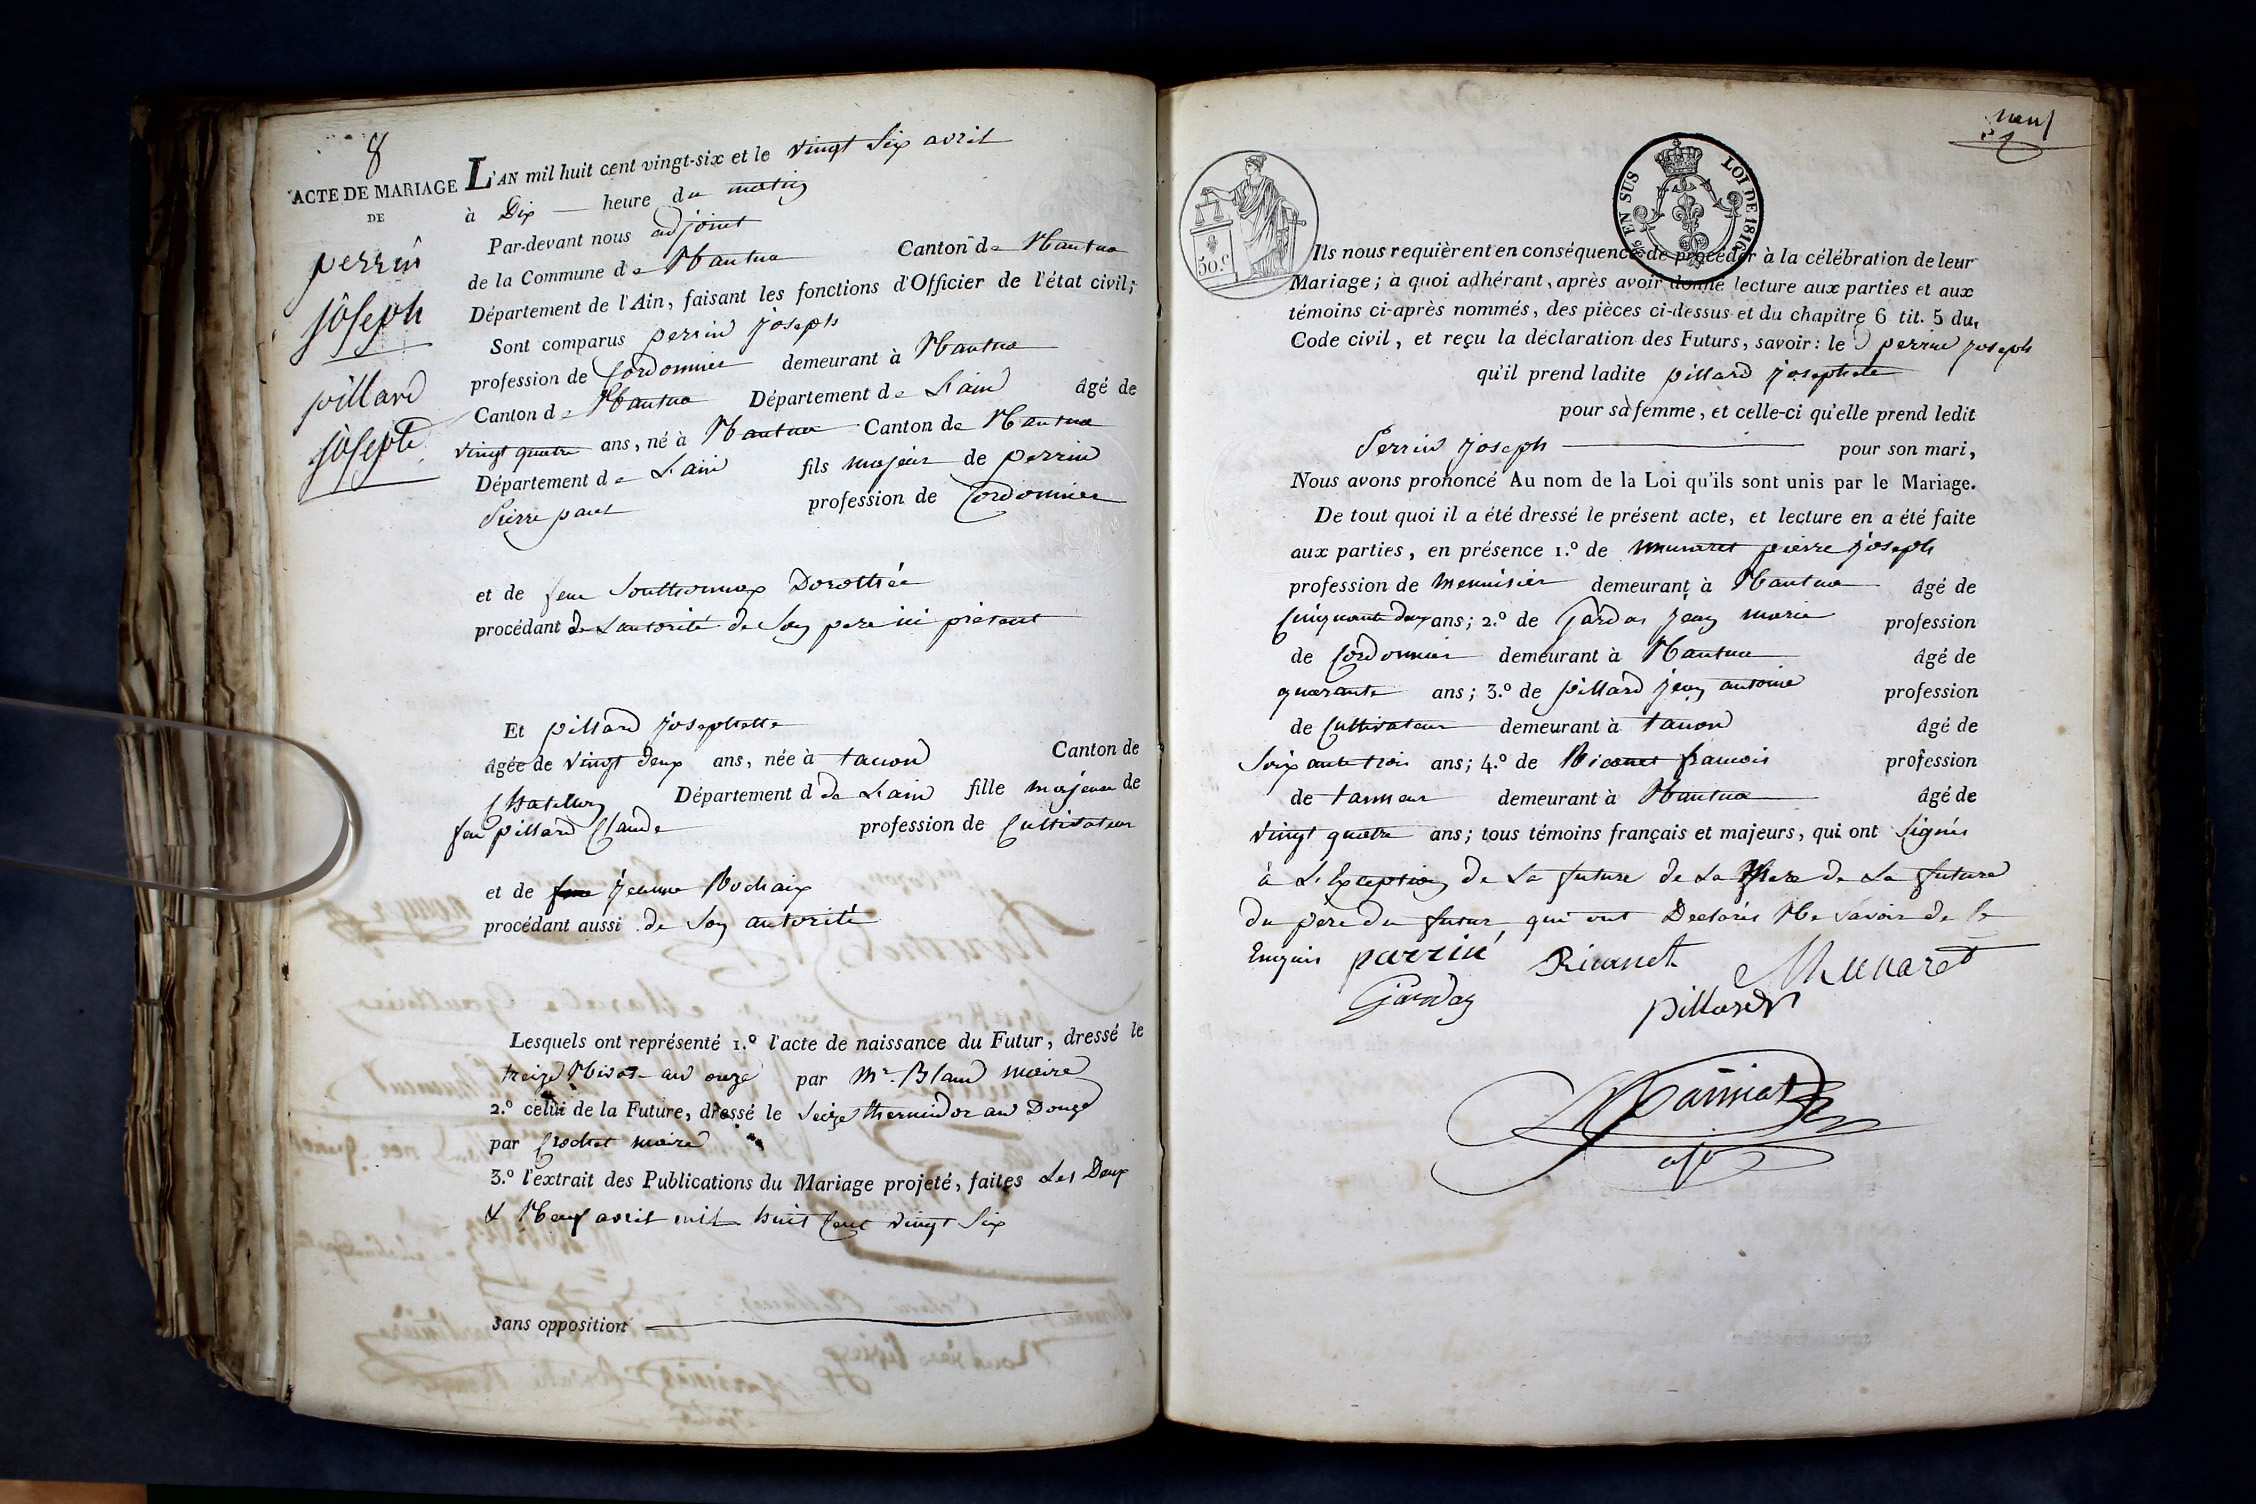 8
ACTE DE MARIAGE
DE
perrin
joseph
pillard
josephte
L'AN mil huit cent vingt-six et le vingt Six avril
à Dix — heure du matin
Par-devant nous adjoint
de la Commune de Nantua Canton de Nantua
Département de l'Ain, faisant les fonctions d'Officier de l'état civil;
Sont comparus perrin joseph
profession de Cordonnier demeurant à Nantua
Canton de Nantua Département de L'ain âgé de
vingt quatre ans, né à Nantua Canton de Nantua
Département de L'ain fils majeur de perrin
Pierre paul profession de Cordonnier
et de feue Southonnax Dorothée
procédant de L'autorité de Son pere ici présent
Et pillard josephette
âgée de vingt deux ans, née à tacon Canton de
Chatillon Département d de L'ain fille majeure de
feu pillard Claude profession de Cultivateur
et de jeanne Rochaix
procédant aussi de Son autorité
Lesquels ont représenté 1.º l'acte de naissance du Futur, dressé le
treize Nivose an onze par Mr. Bland maire
2.º celui de la Future, dressé le Seize thermidor an Douze
par Crochet maire
3.º l'extrait des Publications du Mariage projeté, faites Les Deux
& Neuf avril mil huit Cent vingt Six
sans opposition
neuf
50.c
EN SUS LOI DE 1816
Ils nous requièrent en conséquence de procéder à la célébration de leur
Mariage; à quoi adhérant, après avoir donné lecture aux parties et aux
témoins ci-après nommés, des pièces ci-dessus et du chapitre 6 tit. 5 du
Code civil, et reçu la déclaration des Futurs, savoir: le perrin joseph
qu'il prend ladite pillard josephete
pour sa femme, et celle-ci qu'elle prend ledit
Perrin joseph pour son mari,
Nous avons prononcé Au nom de la Loi qu'ils sont unis par le Mariage.
De tout quoi il a été dressé le présent acte, et lecture en a été faite
aux parties, en présence 1.º de munaret pierre joseph
profession de Menuisier demeurant à Nantua âgé de
Cinquante deux ans; 2.º de jean marie profession
de Cordonnier demeurant à Nantua âgé de
quarante ans; 3.º de pillard jean antoine profession
de Cultivateur demeurant à tacon âgé de
Soixante trois ans; 4.º de francois profession
de tanneur demeurant à Nantua âgé de
vingt quatre ans; tous témoins français et majeurs, qui ont Signés
à L'Exception de La future de La Mere de La future
du pere du futur qui ont Declarés Ne Savoir de Ce
Enquis perrin Munaret
pillard